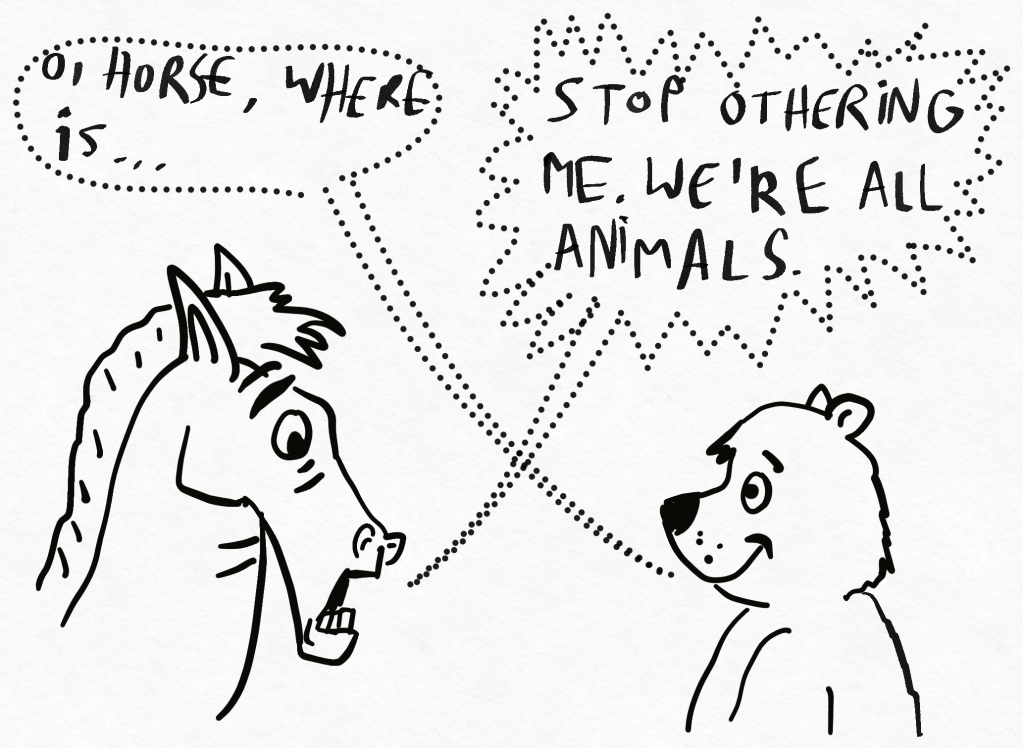 Oi HORSE, WHERE
iS...
STOP OTHERiNG
ME. WE'RE ALL
ANiMALS.